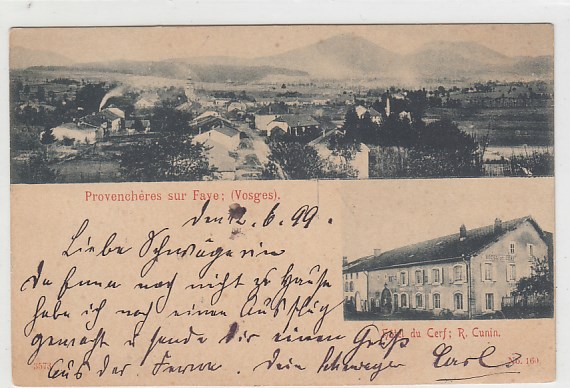 Provenchères sur Faye; (Vosges).
den 12.6.99.
Liebe Schwägerin
Da Emma noch nicht zu Hause
habe ich noch einen Ausflug
gemacht u sende Dir einen Gruß
Aus der Ferne. Dein Schwager Carl
Hotel du Cerf; R. Cunin.
No. 160.